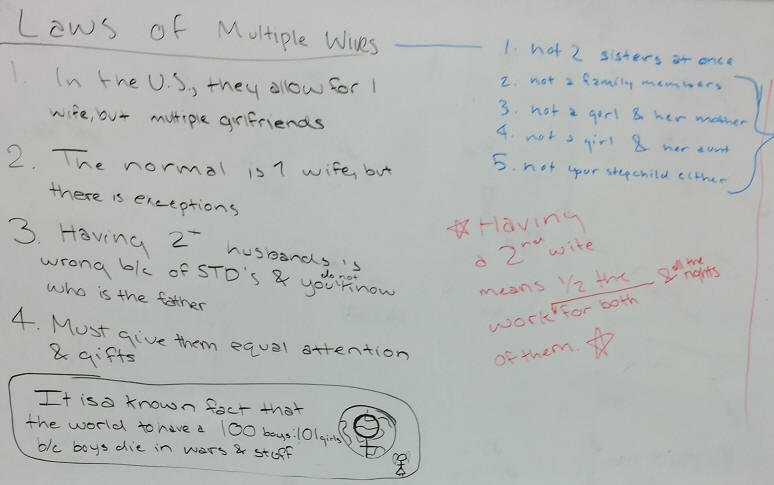 Laws of Multiple Wives
1. In the U.S., they allow for 1
wife, but multiple girlfriends
2. The normal is 1 wife, but
there is exceptions
3. Having 2+ husbands is
wrong b/c of STD's & you do not know
who is the father
4. Must give them equal attention
& gifts
It is a known fact that
the world to have a 100 boys:101 girls
b/c boys die in wars & stuff
1. not 2 sisters at once
2. not 2 family members
3. not a girl & her mother
4. not a girl & her aunt
5. not your stepchild either
Having
a 2nd wife
means 1/2 the
work for both & all the rights
of them.